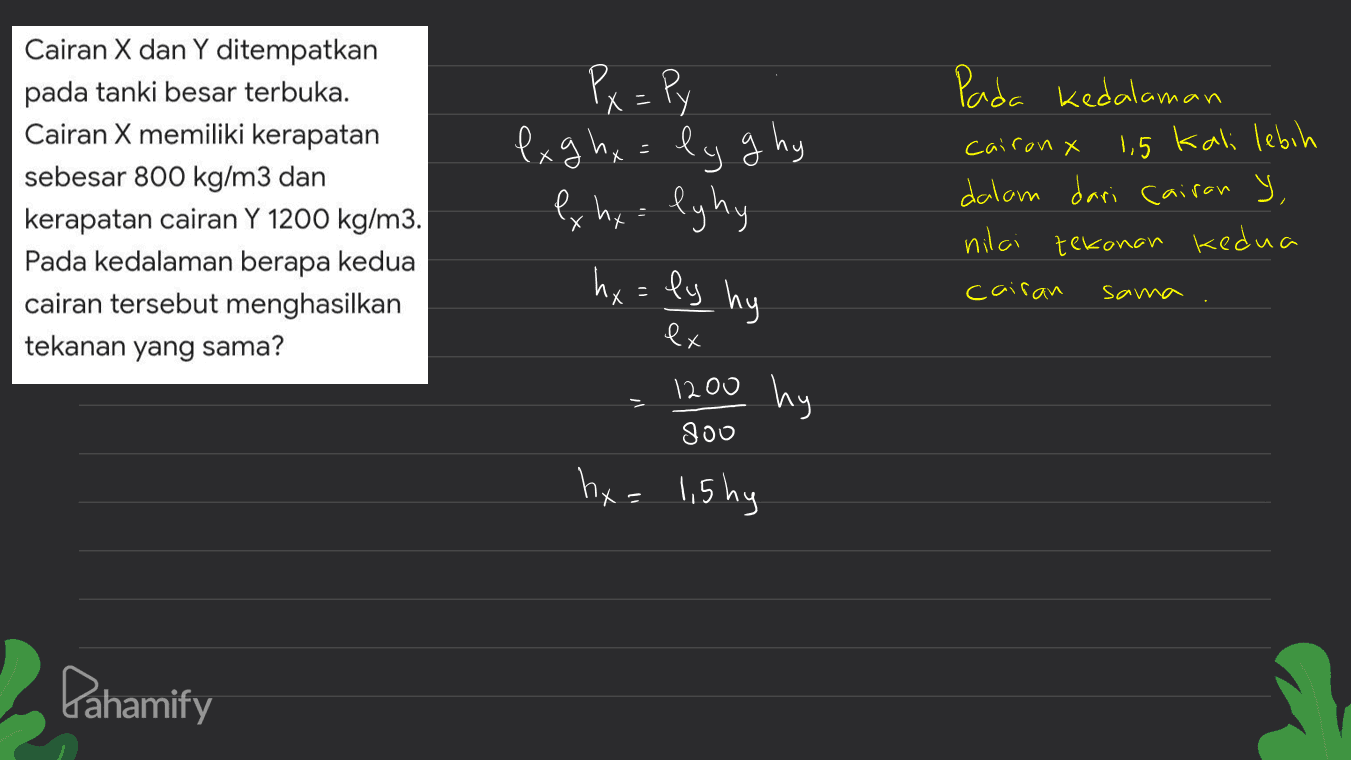 Cairan X dan Y ditempatkan
pada tanki besar terbuka.
Cairan X memiliki kerapatan
sebesar 800 kg/m3 dan
kerapatan cairan Y 1200 kg/m3.
Pada kedalaman berapa kedua
cairan tersebut menghasilkan
tekanan yang sama?
Px = Py
ρx g hx = ρy g hy
ρx hx = ρy hy
hx = ρy/ρx hy
= 1200/800 hy
hx = 1,5 hy
Pada kedalaman
cairan x 1,5 kali lebih
dalam dari cairan y,
nilai tekanan kedua
cairan sama.
Pahamify